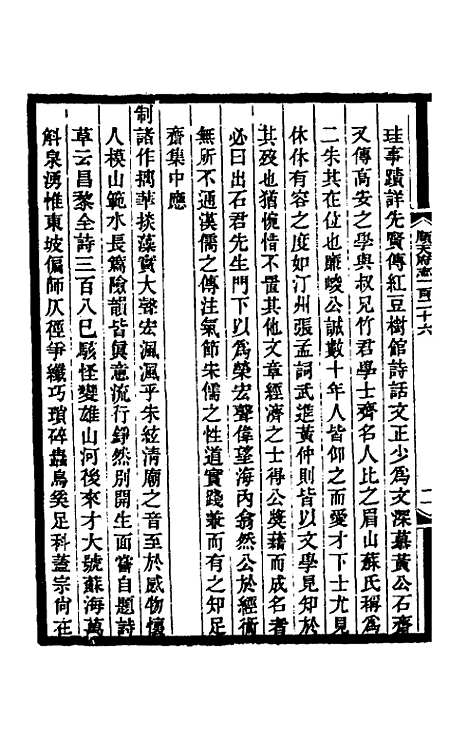 珪事蹟詳先賢傳紅豆樹館詩話文正少爲文深慕黃公石齋
又傳高安之學與叔兄竹君學士齊名人比之眉山蘇氏稱爲
二朱其在位也廉峻公誠數十年人皆仰之而愛才下士尤見
休休有容之度如汀州張孟詞武進黃仲則皆以文學見知於
其歿也猶惋惜不置其他文章經濟之士得公獎藉而成名者
必曰出石君先生門下以爲榮宏聲偉望海內翕然公於經術
無所不通漢儒之傳注氣節宋儒之性道實踐兼而有之知足
齋集中應
制諸作摛華掞藻實大聲宏渢渢乎朱絃清廟之音至於感物懷
人模山範水長篇險韻皆眞意流行錚然別開生面嘗自題詩
草云昌黎全詩三百八已駭怪變雄山河後來才大號蘇海萬
斛泉湧惟東坡偏師仄徑爭纖巧瑣碎蟲鳥奚足科蓋宗尙在
順天府志一百二十六